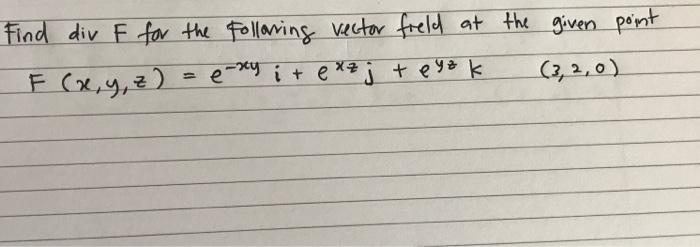 Find div F for the Following vector field at the given point
F (x,y,z) = e^{-xy} i + e^{xz} j + e^{yz} k (3,2,0)